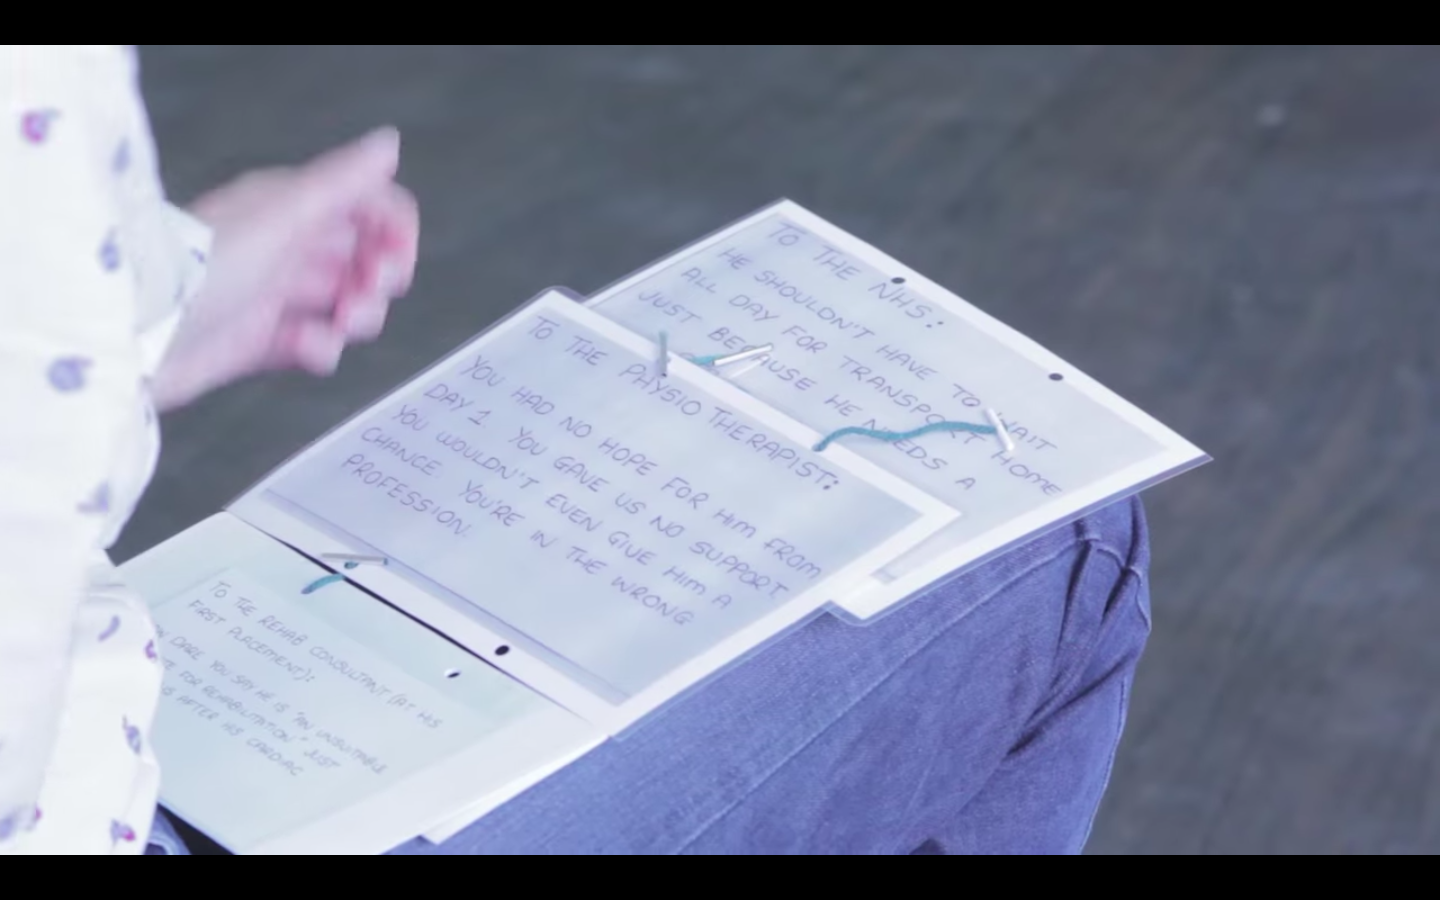 TO THE NHS:
HE SHOULDN'T HAVE TO WAIT
ALL DAY FOR TRANSPORT HOME
JUST BECAUSE HE NEEDS A
TO THE PHYSIO THERAPIST:
YOU HAD NO HOPE FOR HIM FROM
DAY 1. YOU GAVE US NO SUPPORT
YOU WOULDN'T EVEN GIVE HIM A
CHANCE YOU'RE IN THE WRONG
PROFESSION.
TO THE REHAB CONSULTANT (AT HIS
FIRST PLACEMENT):
DARE YOU SAY HE IS "AN UNSUITABLE
FOR REHABILITATION" JUST
AFTER HIS CARDIAC